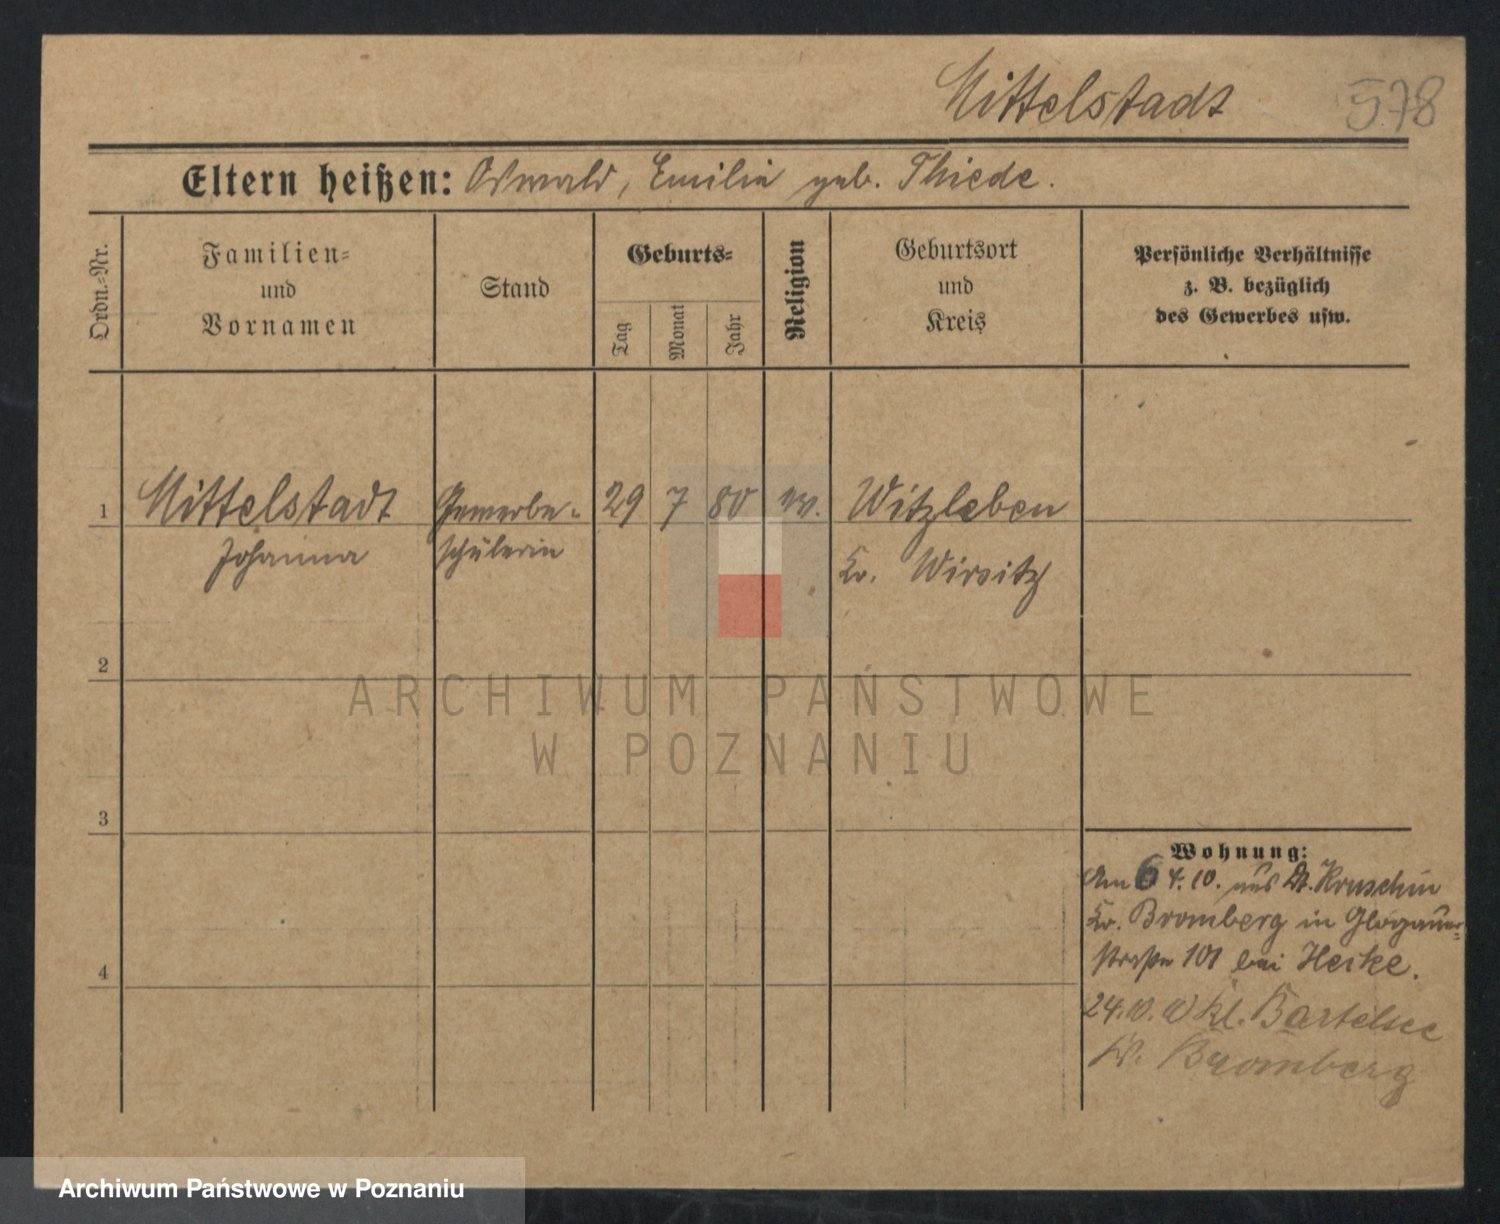 Mittelstadt 578
Eltern heißen: Oswald, Emilie geb. Thiede.
Ordn.-Nr.
Familien-
und
Vornamen
Stand
Geburts-
Tag
Monat
Jahr
Religion
Geburtsort
und
Kreis
Persönliche Verhältnisse
z. B. bezüglich
des Gewerbes usw.
1 Mittelstadt Gewerbe- 29 7 80 ev. Witzleben
Johanna schülerin Kr. Wirsitz
2
ARCHIWUM PAŃSTWOWE
W POZNANIU
3
Wohnung:
Am 6 4.10. aus Dt. Kruschin
Kr. Bromberg in Glogauer-
straße 101 bei Heske.
4
24. Kl. Bartelsee
Kr. Bromberg
Archiwum Państwowe w Poznaniu